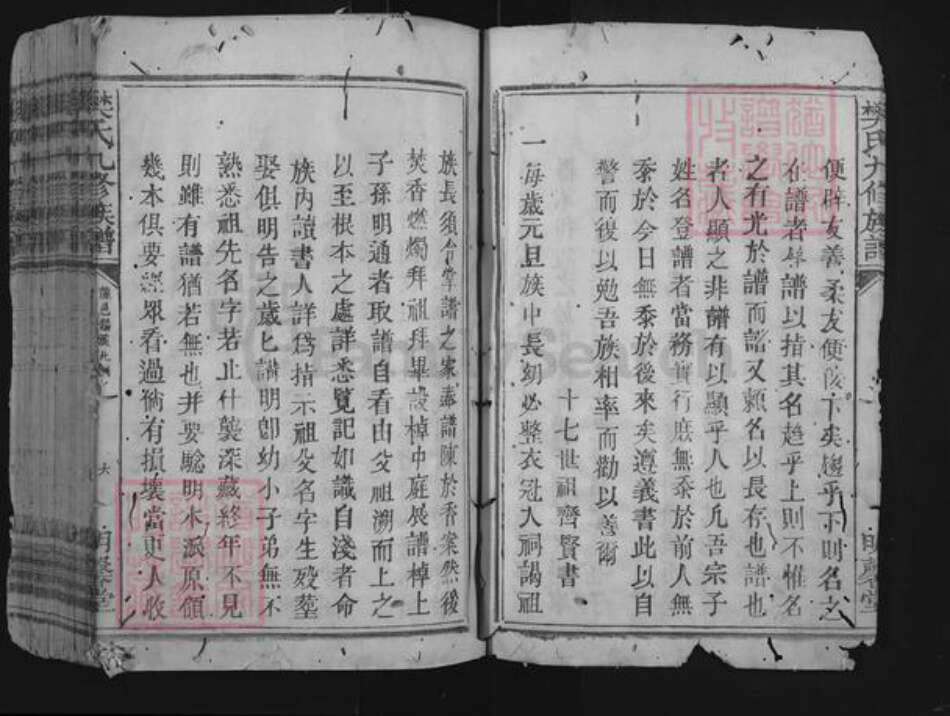 樊氏九修族譜
明發堂
便辟友善柔友便佞下矣趨乎下則名之
在譜者年譜以指其名趨乎上則不惟名
之有光於譜而譜又賴名以長存也譜也
者人顯之非譜有以顯乎人也凡吾宗子
姓名登譜者當務實行庶無忝於前人無
忝於今日無忝於後來矣遵義書此以自
警而復以勉吾族相率而勸以善爾
十七世祖齊賢書
一每歲元旦族中長幼必整衣冠入祠謁祖
族長須令掌譜之家奉譜陳於香案然後
焚香燃燭拜祖拜畢設棹中庭展譜棹上
子孫明通者取譜自看由父祖溯而上之
以至根本之處詳悉覽記如識自淺者命
族內讀書人詳為指示祖父名字生歿塋
娶俱明告之歲匕講明卽幼小子弟無不
熟悉祖先名字若止什襲深藏終年不見
則雖有譜猶若無也并要驗明本派原領
幾本俱要經眾看過倘有損壞當更人收
樊氏九修族譜
六
明發堂